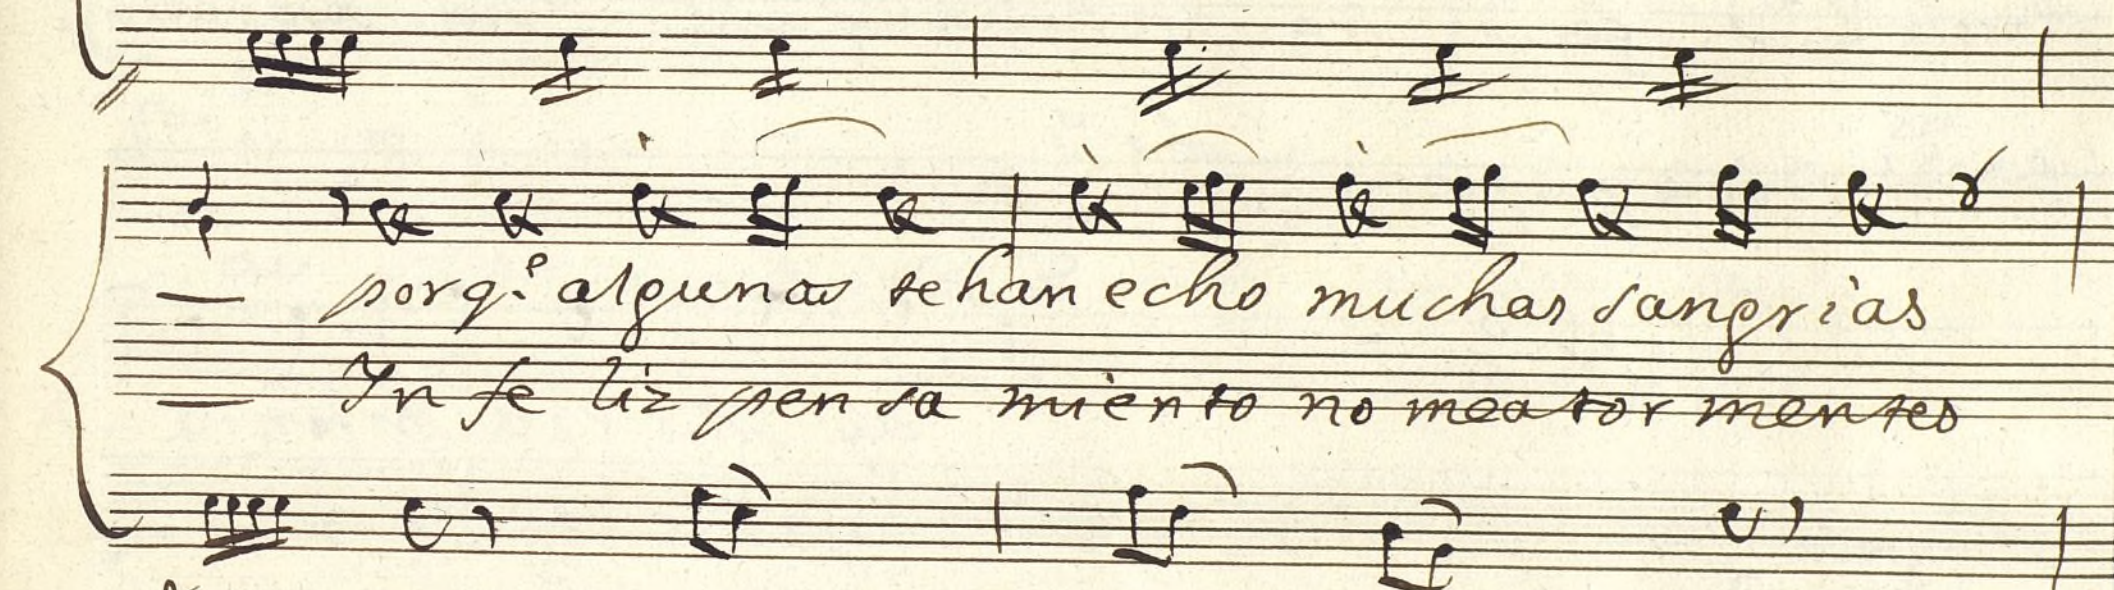 porq.e algunas sehan echo muchas sangrias
In fe liz pen sa miento no mea tor mentes